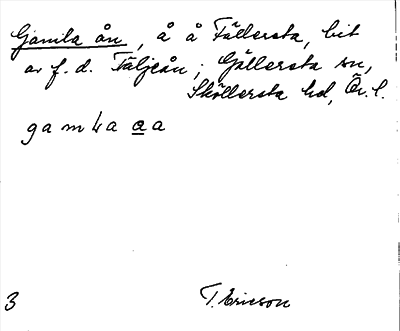 Gamla ån, å å Fällersta, bit
av f.d. Täljeån; Gällersta sn,
Sköllersta hd, Ör. l.
gamLa aa
3
T. Ericson